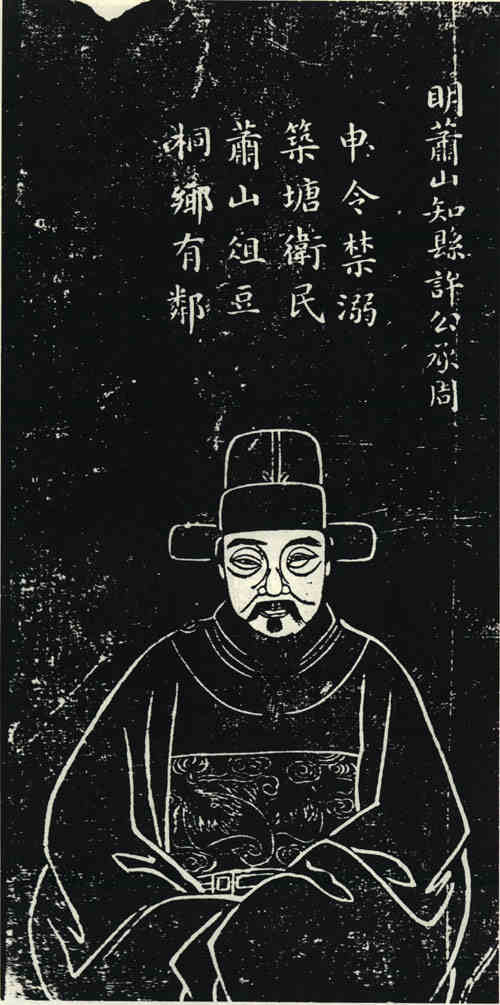 明蕭山知縣許公承周
申令禁溺
築塘衛民
蕭山俎豆
桐鄉有鄰